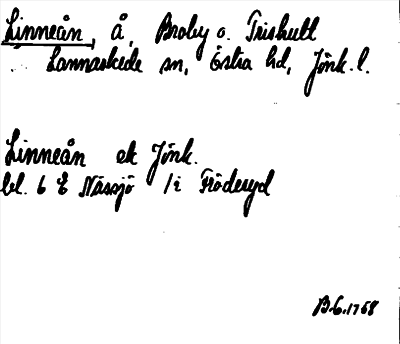 Linneån, å, Broby o. Friskult
Lannaskede sn, Östra hd, Jönk. l.
Linneån ek Jönk.
bl. 6 E Nässjö 1 i Fröderyd
B.C. 1758